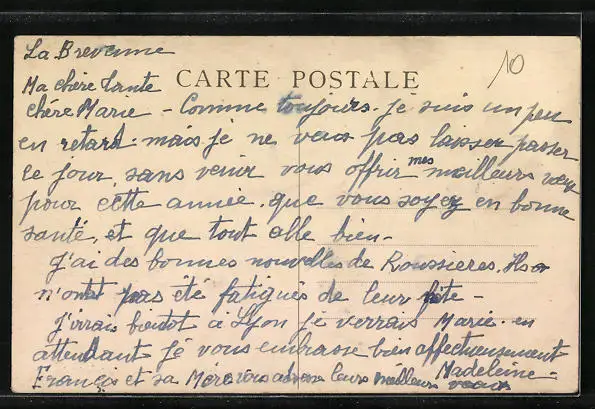 La Brevenne
10
Ma chère Tante
CARTE POSTALE
chère Marie - Comme toujours je suis un peu
en retard. mais je ne veux pas laisser passer
ce jour, sans venir vous offrir mes meilleurs vœux
pour cette année. que vous soyez en bonne
santé, et que tout aille bien -
J'ai des bonnes nouvelles de Roussières. Ils
n'ont pas été fatigués de leur fête -
J'irrais bientot à Lyon je verrais Marie. en
attendant je vous embrasse bien affectueusement
Madeleine -
François et sa Mère vous adresse leurs meilleurs vœux